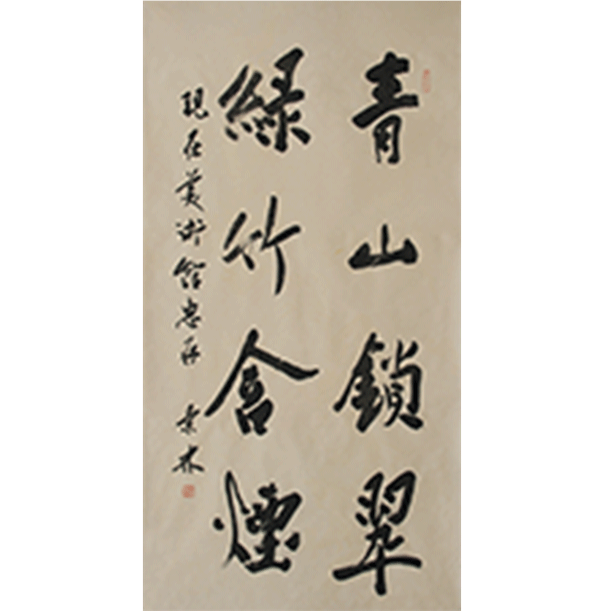 青山鎖翠
綠竹含煙
現在美術館惠存
業林